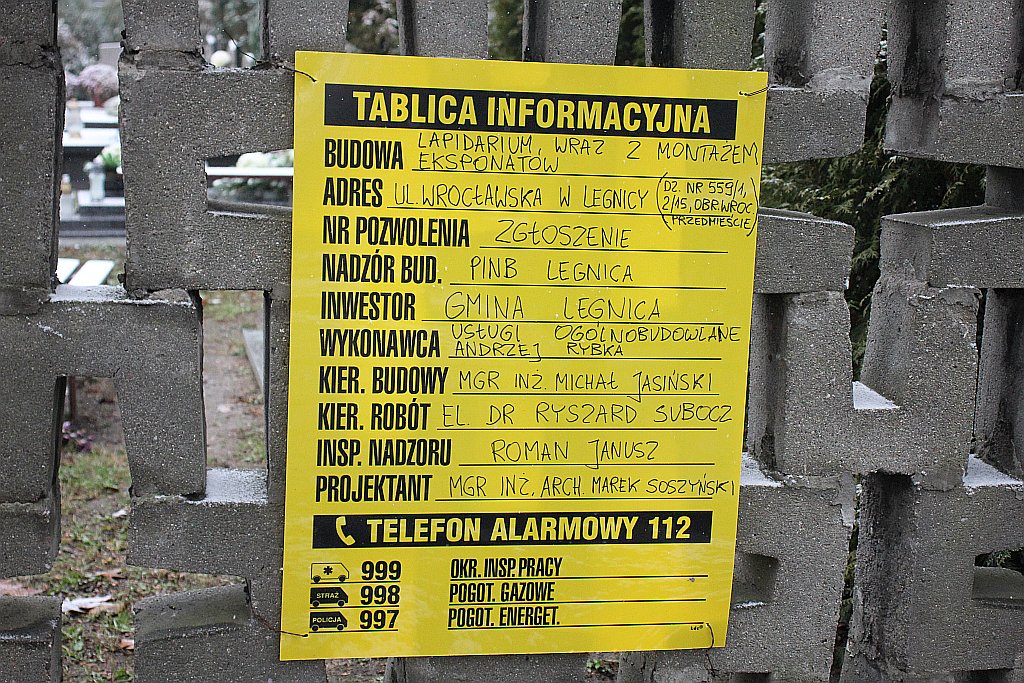 TABLICA INFORMACYJNA
BUDOWA LAPIDARIUM, WRAZ Z MONTAŻEM
EKSPONATÓW
ADRES UL. WROCŁAWSKA W LEGNICY (DZ. NR 559/1,
2/15, OBR. WROC
PRZEDMIEŚCIE)
NR POZWOLENIA ZGŁOSZENIE
NADZÓR BUD. PINB LEGNICA
INWESTOR GMINA LEGNICA
WYKONAWCA USŁUGI OGÓLNOBUDOWLANE
ANDRZEJ RYBKA
KIER. BUDOWY MGR INŻ MICHAŁ JASIŃSKI
KIER. ROBÓT EL. DR RYSZARD SUBOCZ
INSP. NADZORU ROMAN JANUSZ
PROJEKTANT MGR INŻ. ARCH. MAREK SOSZYŃSKI
TELEFON ALARMOWY 112
999 OKR. INSP. PRACY
STRAŻ 998 POGOT. GAZOWE
POLICJA 997 POGOT. ENERGET.